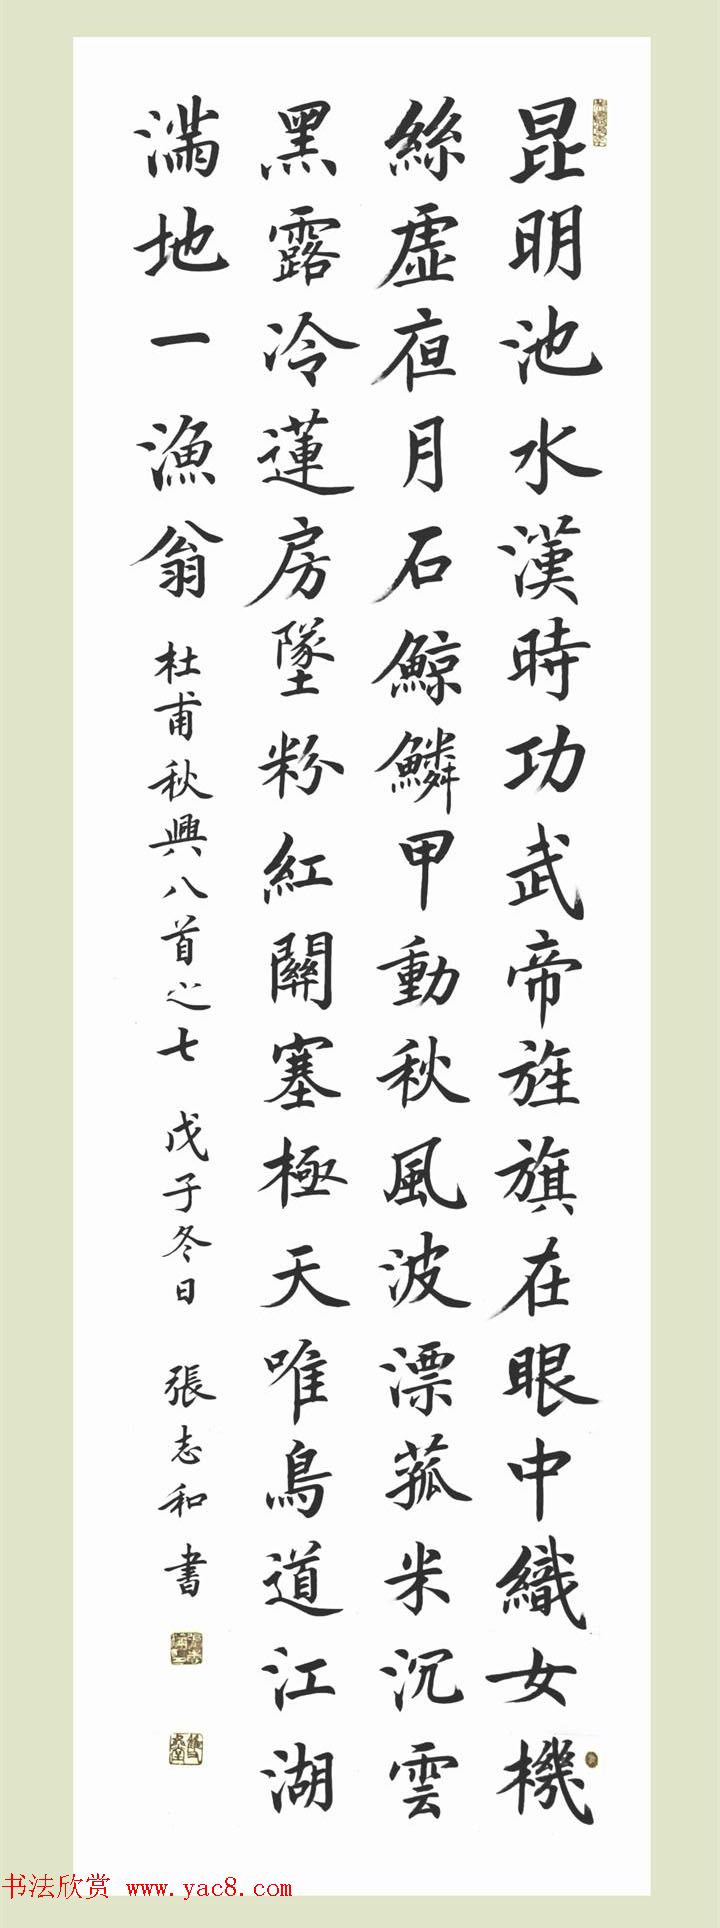 昆明池水漢時功武帝旌旗在眼中織女機
絲虛夜月石鯨鱗甲動秋風波漂菰米沉雲
黑露冷蓮房墜粉紅關塞極天唯鳥道江湖
滿地一漁翁
杜甫秋興八首之七 戊子冬日 張志和書
书法欣赏 www.yac8.com